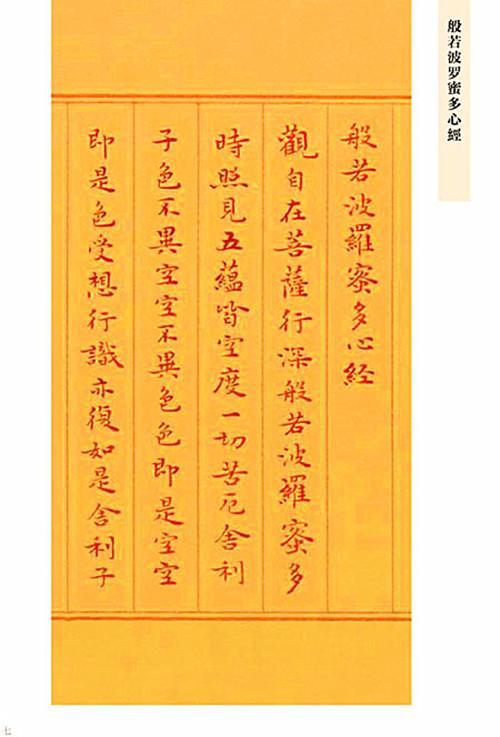 般若波罗蜜多心經
般若波羅蜜多心経
觀自在菩薩行深般若波羅蜜多
時照見五蘊皆空度一切苦厄舍利
子色不異空空不異色色即是空空
即是色受想行識亦復如是舍利子
七